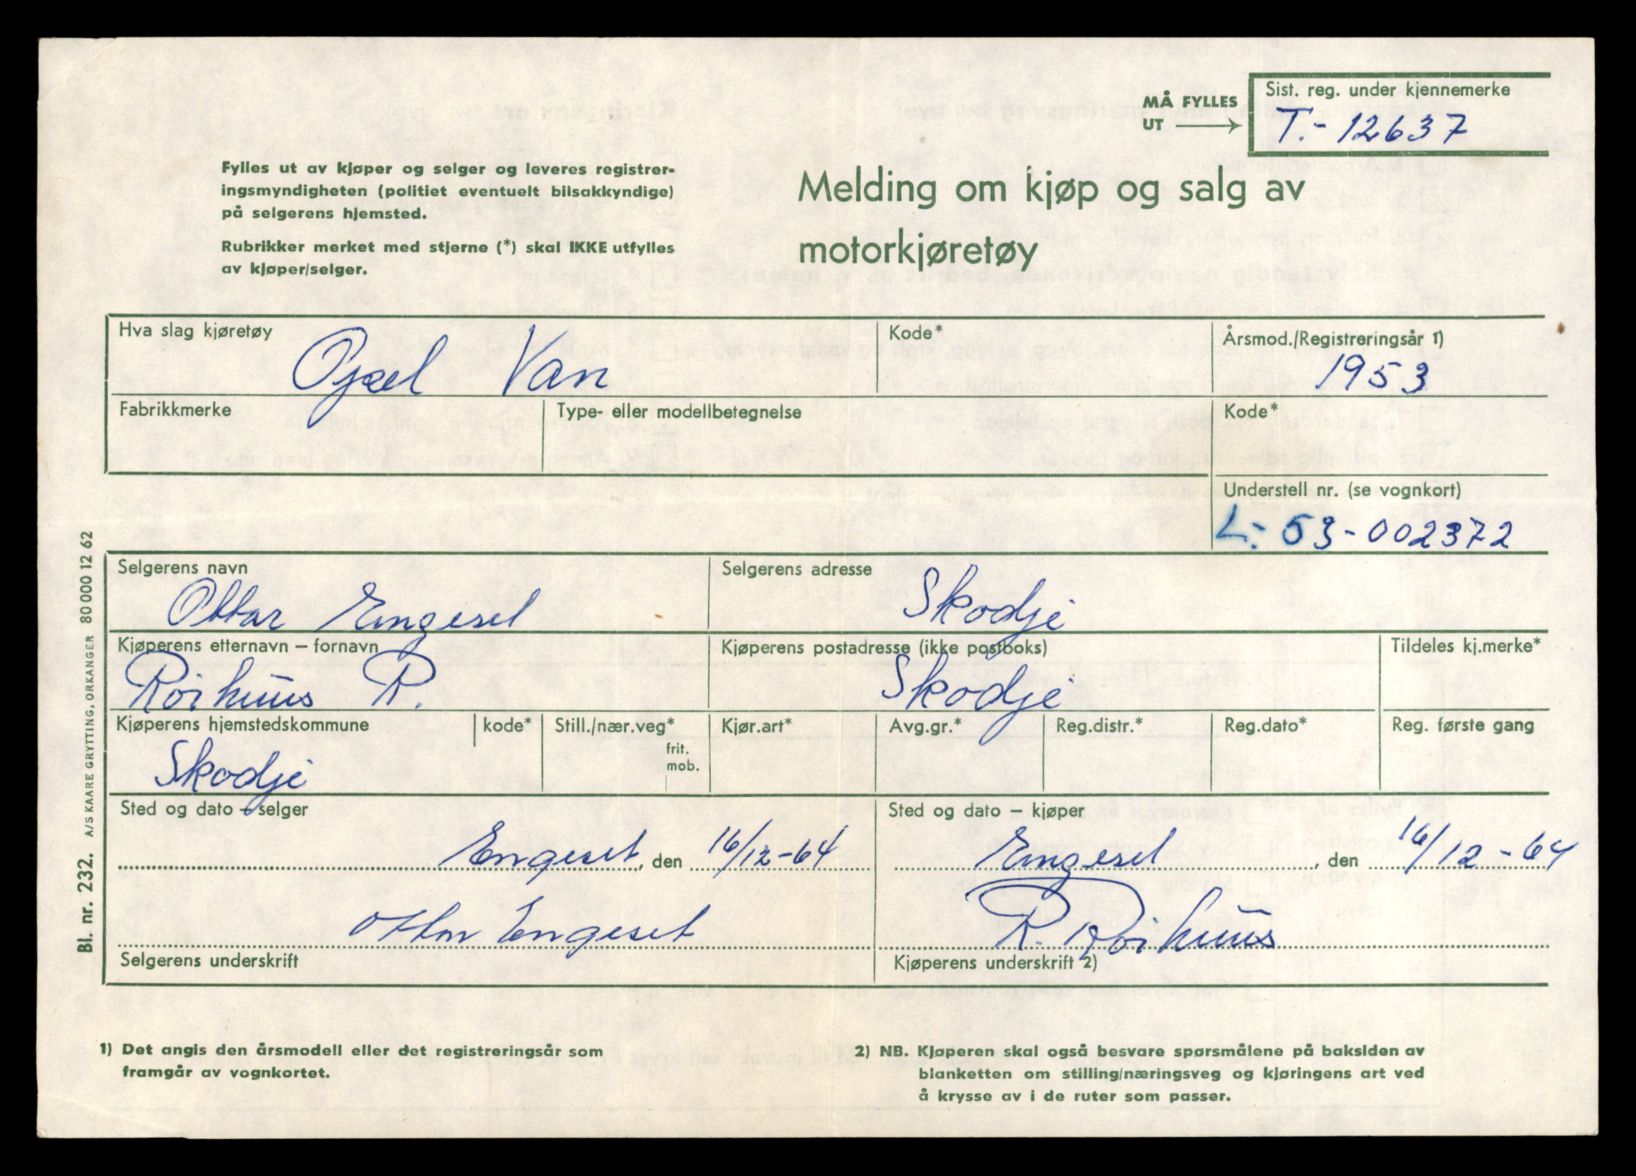 MÅ FYLLES
UT
Sist. reg. under kjennemerke
T.- 12637
Fylles ut av kjøper og selger og leveres registrer-
ingsmyndigheten (politiet eventuelt bilsakkyndige)
på selgerens hjemsted.
Rubrikker merket med stjerne (*) skal IKKE utfylles
av kjøper/selger.
Melding om kjøp og salg av
motorkjøretøy
Hva slag kjøretøy
Opel Van
Kode*
Årsmod./Registreringsår 1)
1953
Fabrikkmerke
Type- eller modellbetegnelse
Kode*
Understell nr. (se vognkort)
L.- 53-002372
Selgerens navn
Ottar Engeset
Selgerens adresse
Skodje
Kjøperens etternavn – fornavn
Roihuus R.
Kjøperens postadresse (ikke postboks)
Skodje
Tildeles kj.merke*
Kjøperens hjemstedskommune
Skodje
kode*
Still./nær.veg*
frit.
mob.
Kjør.art*
Avg.gr.*
Reg.distr.*
Reg.dato*
Reg. første gang
Sted og dato – selger
Engeset, den 16/12-64
Sted og dato – kjøper
Engeset, den 16/12-64
Ottar Engeset
Selgerens underskrift
R. Roihuus
Kjøperens underskrift 2)
Bl. nr. 232. A/S KAARE GRYTTING, ORKANGER 80 000 12 62
1) Det angis den årsmodell eller det registreringsår som
framgår av vognkortet.
2) NB. Kjøperen skal også besvare spørsmålene på baksiden av
blanketten om stilling/næringsveg og kjøringens art ved
å krysse av i de ruter som passer.